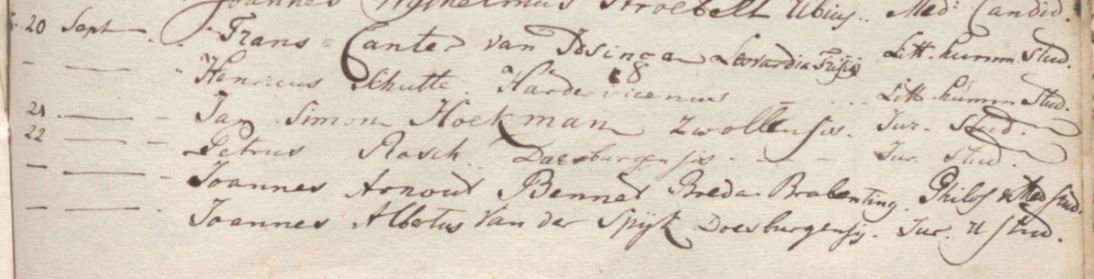 Joannes Wylhelmus Stroebelt Ubius. Med: Candid.
20 Sept — . Frans Canter van Tdsinga Leovardia Frisij Litt. hum. Stud.
— — " Henricus Schutte. Hardervicenus ... Litt. hum. Stud.
18
21. — - Jan Simon Hoekman Zwollensis. Jur. Stud.
22 — - Petrus Rasch. Doesburgensis - - - Jur. Stud.
— — - Joannes Arnout Bennet Breda-Brabantinq. Philos & Med Stud.
— — . Joannes Albertus van der Spijk Doesburgensis. Jur. U Stud.